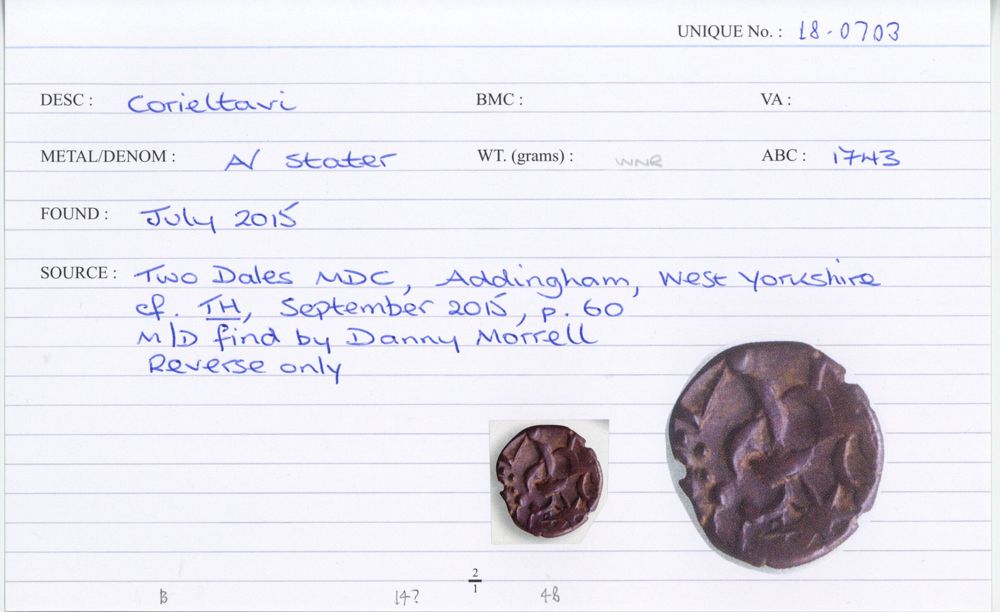 UNIQUE No. : 18-0703
DESC : Corieltavi BMC : VA :
METAL/DENOM : A/ Stater WT. (grams) : WNR ABC : 1743
FOUND : July 2015
SOURCE : Two Dales MDC, Addingham, West Yorkshire
cf. TH, September 2015, p. 60
M/D find by Danny Morrell
Reverse only
2
1
B 14? 48